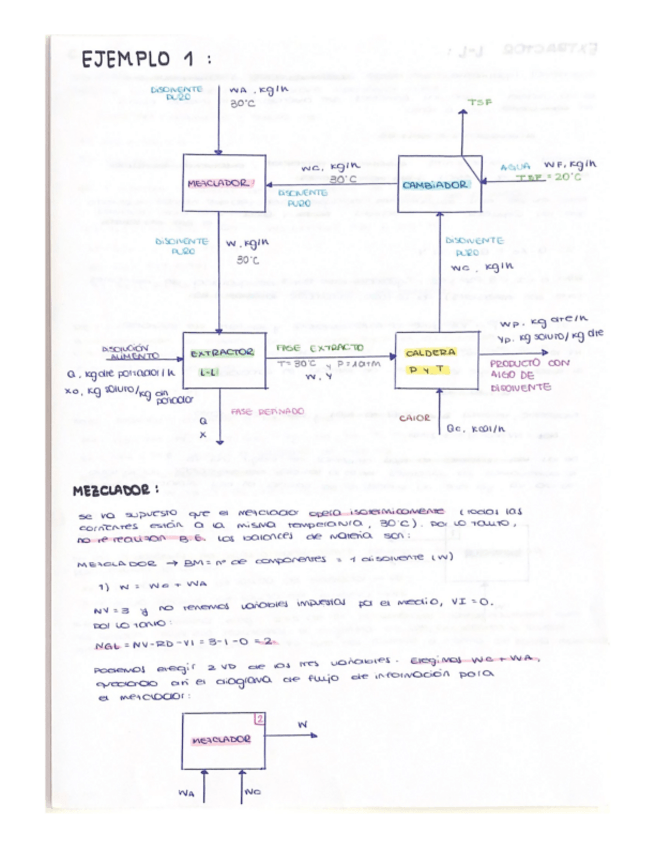 EJEMPLO 1 :
DISOLVENTE
PURO
WA , kg/h
30°C
TSF
MEZCLADOR
WC, kg/h
30°C
DISOLVENTE
PURO
CAMBIADOR
AGUA WF, kg/h
TEF = 20°C
DISOLVENTE
PURO
W, kg/h
30°C
DISOLVENTE
PURO
WC, kg/h
DISOLUCIÓN
ALIMENTO
Q, kg de portador/h
XO, kg soluto/kg de
portador
EXTRACTOR
L-L
FASE EXTRACTO
T=30°C y P=1atm
W, Y
CALDERA
P y T
WP, kg dre/h
YP, kg soluto/kg dre
PRODUCTO CON
ALGO DE
DISOLVENTE
Q
X
FASE REFINADO
CALOR
QC, kcal/h
MEZCLADOR :
Se ha supuesto que el mezclador opera isotérmicamente (todas las
corrientes están a la misma temperatura, 30°C). Por lo tanto,
no se realizan B.E. Los balances de materia son:
MEZCLADOR → BM= nº de componentes = 1 disolvente (W)
1) W = WC + WA
NV=3 y no tenemos variables impuestas por el medio, VI=0.
Por lo tanto:
NGL = NV-RD-VI = 3-1-0 = 2.
Podemos elegir 2 VD de las tres variables. Elegimos WC y WA,
quedando así el diagrama de flujo de información para
el mezclador:
MEZCLADOR
2
W
WA
WC